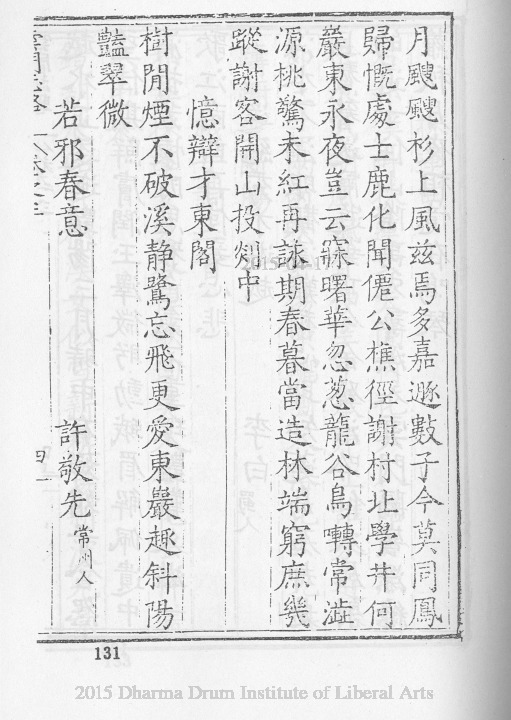 月颼颼杉上風茲焉多嘉遯數子今莫同鳳
歸慨處士鹿化聞僊公樵徑謝村北學井何
巖東永夜豈云寐曙華忽葱蘢谷鳥囀常澁
源桃驚未紅再詠期春暮當造林端窮庶幾
蹤謝客開山投剡中
憶辯才東閣
樹閒煙不破溪静鷺忘飛更愛東巖趣斜陽
豔翠微
若邪春意 許敬先 常州人
131
2015 Dharma Drum Institute of Liberal Arts